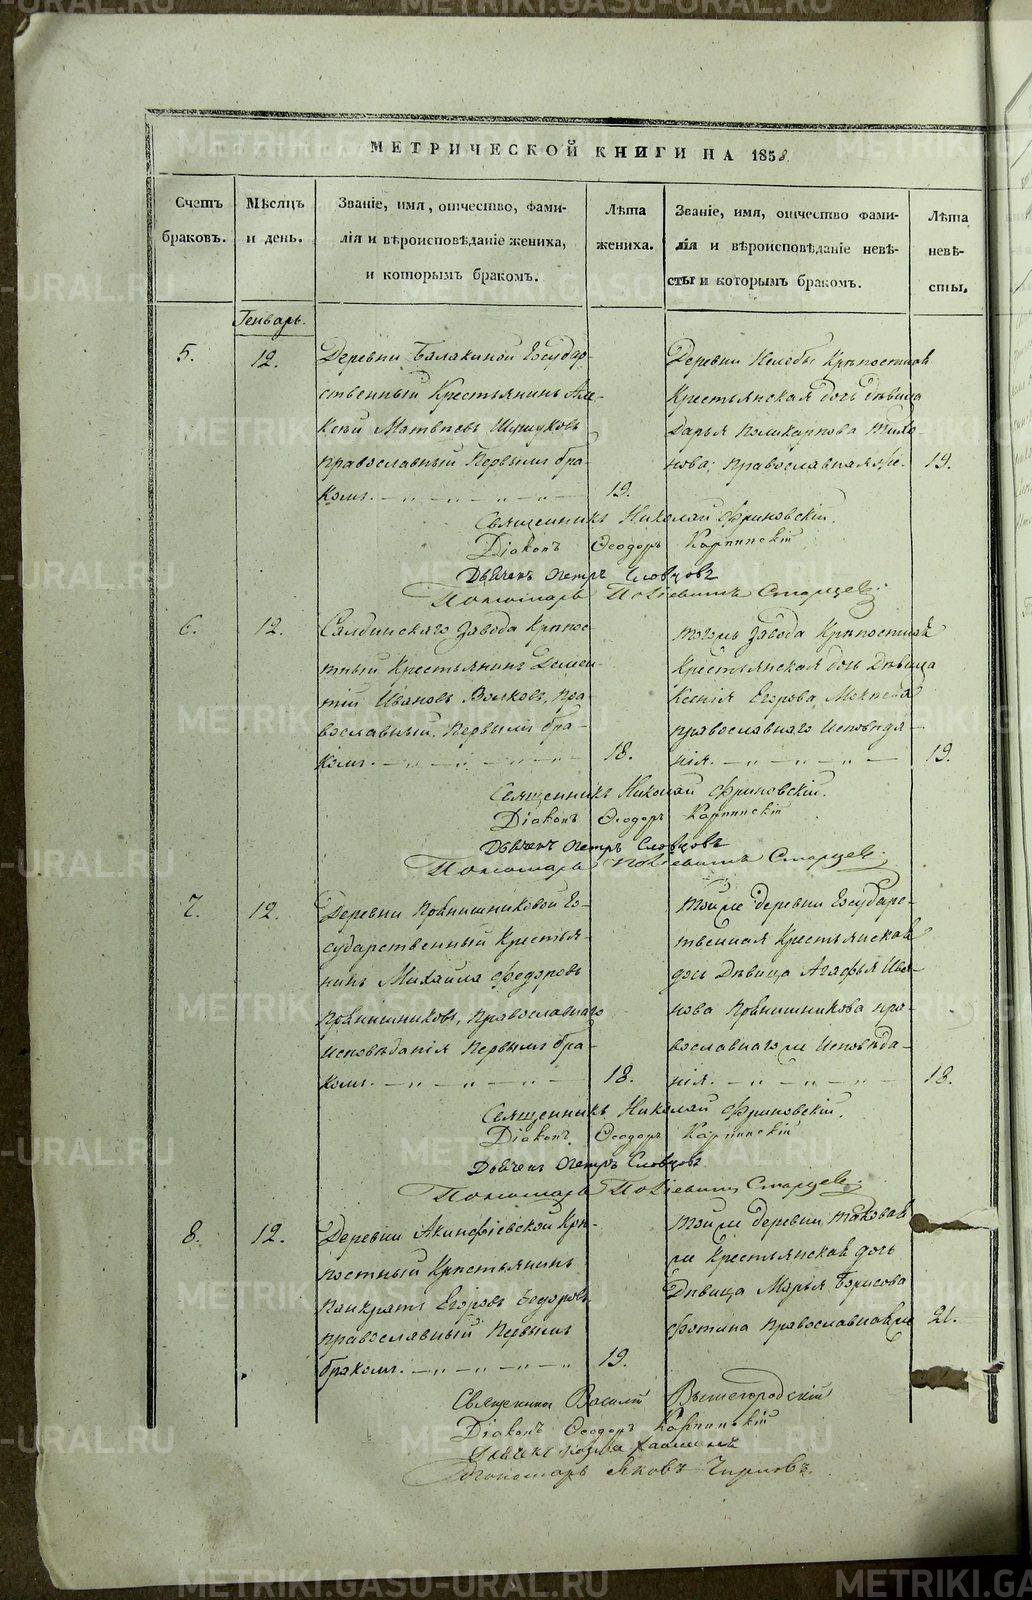 МЕТРИЧЕСКОЙ КНИГИ НА 1858.
Счетъ браковъ.
Мѣсяцъ и день.
Званіе, имя, отчество, фами-
лія и вѣроисповѣданіе жениха,
и которымъ бракомъ.
Лѣта жениха.
Званіе, имя, отчество фами-
лія и вѣроисповѣданіе невѣ-
сты и которымъ бракомъ.
Лѣта невѣ-
сты.
Генварь.
5.
12.
Деревни Балакиной Государ-
ственный Крестьянинъ Але-
ксѣй Матвѣевъ Шушуковъ
православный Первымъ бра-
комъ.
19.
Деревни Нелобы Крѣпостная
Крестьянская дочь дѣвица
Дарья Поликарпова Тихо-
нова, православная же.
19.
Священникъ Николай Фриновскій.
Діаконъ Ѳеодоръ Карпинскій
Дьячекъ Петръ Словцовъ
Пономарь Поліевктъ Старцев.
6.
12.
Салдинскаго Завода Крѣпос-
тный Крестьянинъ Демен-
тій Ивановъ Волковъ, пра-
вославный, Первымъ бра-
комъ.
18.
Тогожъ Завода Крѣпостная
Крестьянская дочь Дѣвица
Ксенія Егорова
православнаго Исповѣда-
нія.
19.
Священникъ Николай Фриновскій.
Діаконъ Ѳеодоръ Карпинскій
Дьячекъ Петръ Словцовъ
Пономарь Поліевктъ Старцев.
7.
12.
Деревни Прянишниковой Го-
сударственный Крестья-
нинъ Михайла Федоровъ
Прянишниковъ, Православнаго
исповѣданія Первымъ бра-
комъ.
18.
Той же деревни Государс-
твенная Крестьянская
дочь Дѣвица Агафья Ива-
нова Прянишникова пра-
вославнаго же Исповѣда-
нія.
18.
Священникъ Николай Фриновскій.
Діаконъ Ѳеодоръ Карпинскій
Дьячекъ Петръ Словцовъ
Пономарь Поліевктъ Старцев.
8.
12.
Деревни Акинфіевской Крѣ-
постный Крестьянинъ
Панкратъ Егоровъ Федоровъ
православный Первымъ
бракомъ.
19.
Той же деревни, таковая
же Крестьянская дочь
Дѣвица Марья Борисова
Фотина Православная же
21.
Священникъ Василій Вышегородскій
Діаконъ Ѳеодоръ Карпинскій
Пономарь Яковъ
METRIKI.GASO-URAL.RU